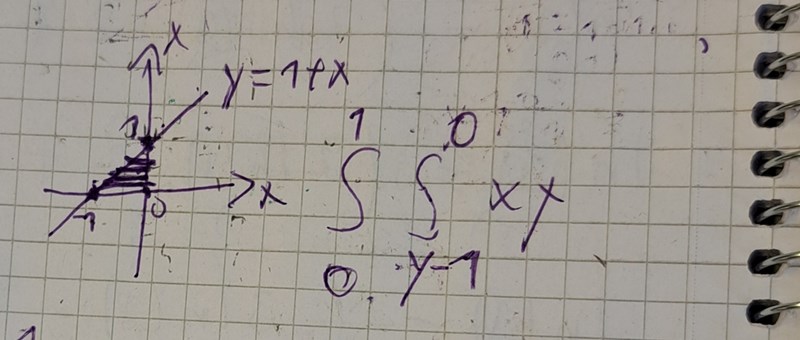 x
y=1+x
1
1 0
∫ ∫ xy
0 y-1
x
1 0